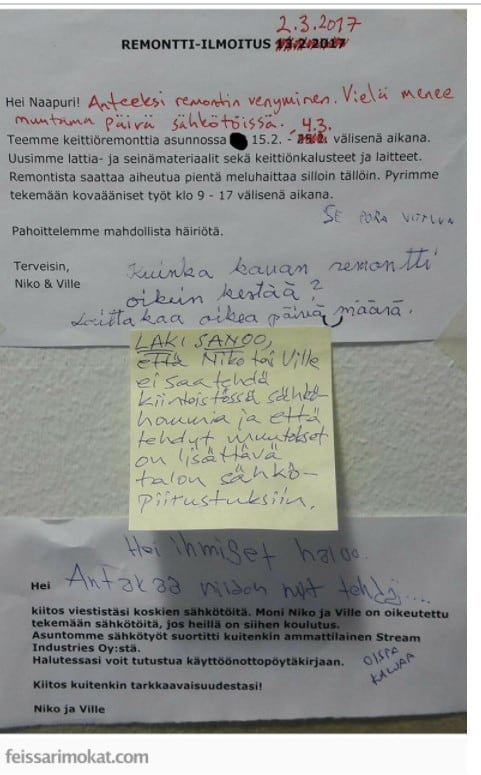 2.3.2017
REMONTTI-ILMOITUS 13.2.2017
Hei Naapuri! Anteeksi remontin venyminen. Vielä menee
muutama päivä sähkötöissä. 4.3.
Teemme keittiöremonttia asunnossa 15.2. - välisenä aikana.
Uusimme lattia- ja seinämateriaalit sekä keittiönkalusteet ja laitteet.
Remontista saattaa aiheutua pientä meluhaittaa silloin tällöin. Pyrimme
tekemään kovaääniset työt klo 9 - 17 välisenä aikana.
SE PORA VITTUUN
Pahoittelemme mahdollista häiriötä.
Terveisin,
Niko & Ville
Kuinka kauan remontti
oikein kestää?
Laittakaa oikea päivä määrä.
LAKI SANOO,
että Niko tai Ville
ei saa tehdä
kiinteistössä sähkö-
hommia ja että
tehdyt muutokset
on lisättävä
talon sähkö-
piitustuksiin.
Hei ihmiset haloo.
Antakaa niiden nyt tehdä...
Hei
kiitos viestistäsi koskien sähkötöitä. Moni Niko ja Ville on oikeutettu
tekemään sähkötöitä, jos heillä on siihen koulutus.
Asuntomme sähkötyöt suortitti kuitenkin ammattilainen Stream
Industries Oy:stä.
Halutessasi voit tutustua käyttöönottopöytäkirjaan.
OISPA
KALJAA
Kiitos kuitenkin tarkkaavaisuudestasi!
Niko ja Ville
feissarimokat.com